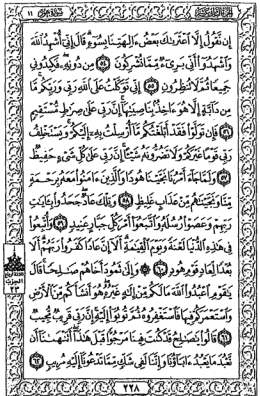 سورة هود ١١
إِن نَّقُولُ إِلَّا ٱعْتَرَىٰكَ بَعْضُ ءَالِهَتِنَا بِسُوٓءٍ قَالَ إِنِّىٓ أُشْهِدُ ٱللَّهَ
وَٱشْهَدُوٓا۟ أَنِّى بَرِىٓءٌ مِّمَّا تُشْرِكُونَ ٥٤ مِن دُونِهِۦ فَكِيدُونِى
جَمِيعًا ثُمَّ لَا تُنظِرُونِ ٥٥ إِنِّى تَوَكَّلْتُ عَلَى ٱللَّهِ رَبِّى وَرَبِّكُم مَّا
مِن دَآبَّةٍ إِلَّا هُوَ ءَاخِذٌۢ بِنَاصِيَتِهَآ إِنَّ رَبِّى عَلَىٰ صِرَٰطٍ مُّسْتَقِيمٍ
٥٦ فَإِن تَوَلَّوْا۟ فَقَدْ أَبْلَغْتُكُم مَّآ أُرْسِلْتُ بِهِۦٓ إِلَيْكُمْ وَيَسْتَخْلِفُ
رَبِّى قَوْمًا غَيْرَكُمْ وَلَا تَضُرُّونَهُۥ شَيْـًٔا إِنَّ رَبِّى عَلَىٰ كُلِّ شَىْءٍ حَفِيظٌ
٥٧ وَلَمَّا جَآءَ أَمْرُنَا نَجَّيْنَا هُودًا وَٱلَّذِينَ ءَامَنُوا۟ مَعَهُۥ بِرَحْمَةٍ
مِّنَّا وَنَجَّيْنَٰهُم مِّنْ عَذَابٍ غَلِيظٍ ٥٨ وَتِلْكَ عَادٌ جَحَدُوا۟ بِـَٔايَٰتِ
رَبِّهِمْ وَعَصَوْا۟ رُسُلَهُۥ وَٱتَّبَعُوٓا۟ أَمْرَ كُلِّ جَبَّارٍ عَنِيدٍ ٥٩ وَأُتْبِعُوا۟
فِى هَٰذِهِ ٱلدُّنْيَا لَعْنَةً وَيَوْمَ ٱلْقِيَٰمَةِ أَلَآ إِنَّ عَادًا كَفَرُوا۟ رَبَّهُمْ أَلَا
بُعْدًا لِّعَادٍ قَوْمِ هُودٍ ٦٠ وَإِلَىٰ ثَمُودَ أَخَاهُمْ صَٰلِحًا قَالَ
يَٰقَوْمِ ٱعْبُدُوا۟ ٱللَّهَ مَا لَكُم مِّنْ إِلَٰهٍ غَيْرُهُۥ هُوَ أَنشَأَكُم مِّنَ ٱلْأَرْضِ
وَٱسْتَعْمَرَكُمْ فِيهَا فَٱسْتَغْفِرُوهُ ثُمَّ تُوبُوٓا۟ إِلَيْهِ إِنَّ رَبِّى قَرِيبٌ مُّجِيبٌ
٦١ قَالُوا۟ يَٰصَٰلِحُ قَدْ كُنتَ فِينَا مَرْجُوًّا قَبْلَ هَٰذَآ أَتَنْهَىٰنَآ أَن
نَّعْبُدَ مَا يَعْبُدُ ءَابَآؤُنَا وَإِنَّنَا لَفِى شَكٍّ مِّمَّا تَدْعُونَآ إِلَيْهِ مُرِيبٍ ٦٢
الحزب
٢٣
٢٢٨